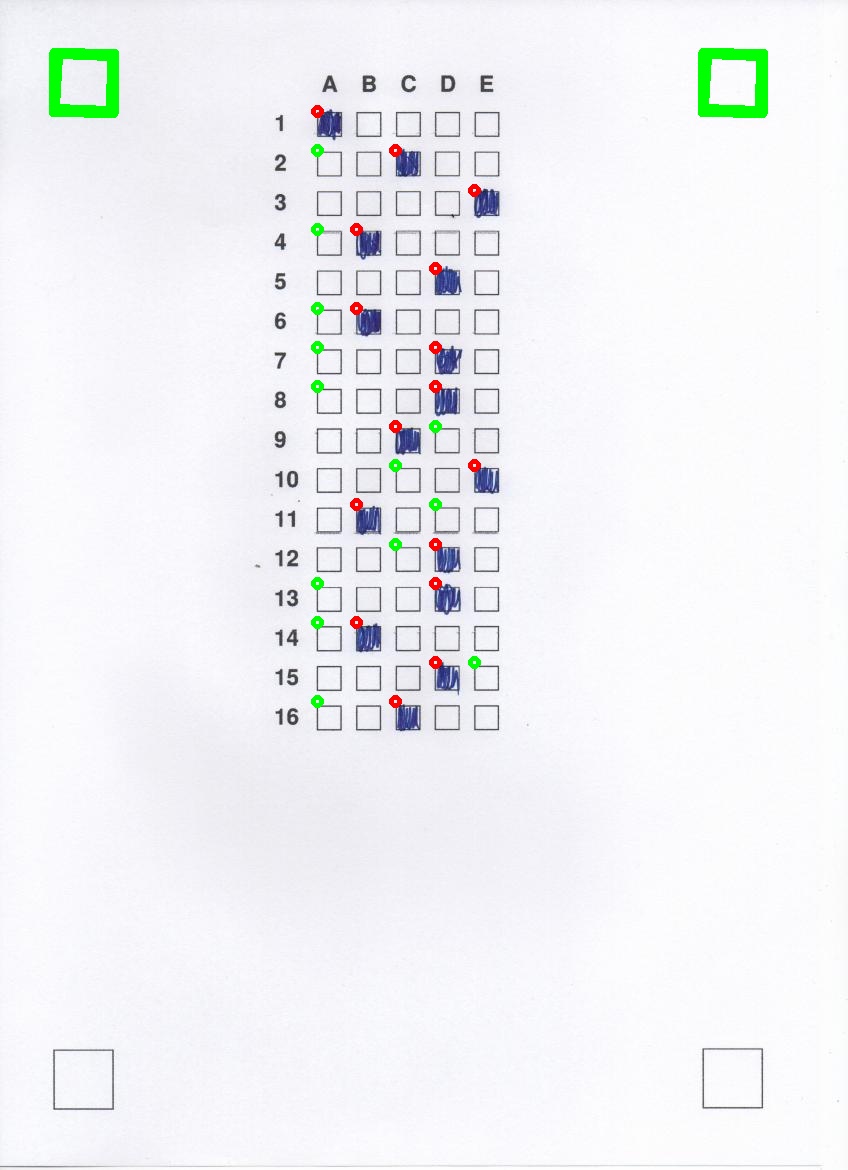 A B C D E
1
2
3
4
5
6
7
8
9
10
11
12
13
14
15
16